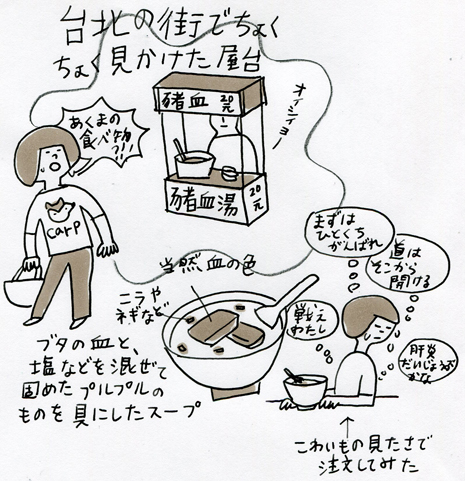 台北の街でちょく
ちょく見かけた屋台
オイシイヨー
猪血 20元
猪血湯 20元
あくまの
食べ物
?!!
carp
まずは
ひとくち
がんばれ
道は
そこから
開ける
戦え
わたし
肝炎
だいじょうぶ
かな
当然血の色
ニラや
ネギなど
ブタの血と、
塩などを混ぜて
固めたプルプルの
ものを具にしたスープ
こわいもの見たさで
注文してみた